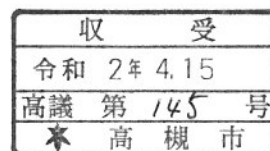 収 受
令和 2年 4.15
高議 第 145 号
★ 高 槻 市